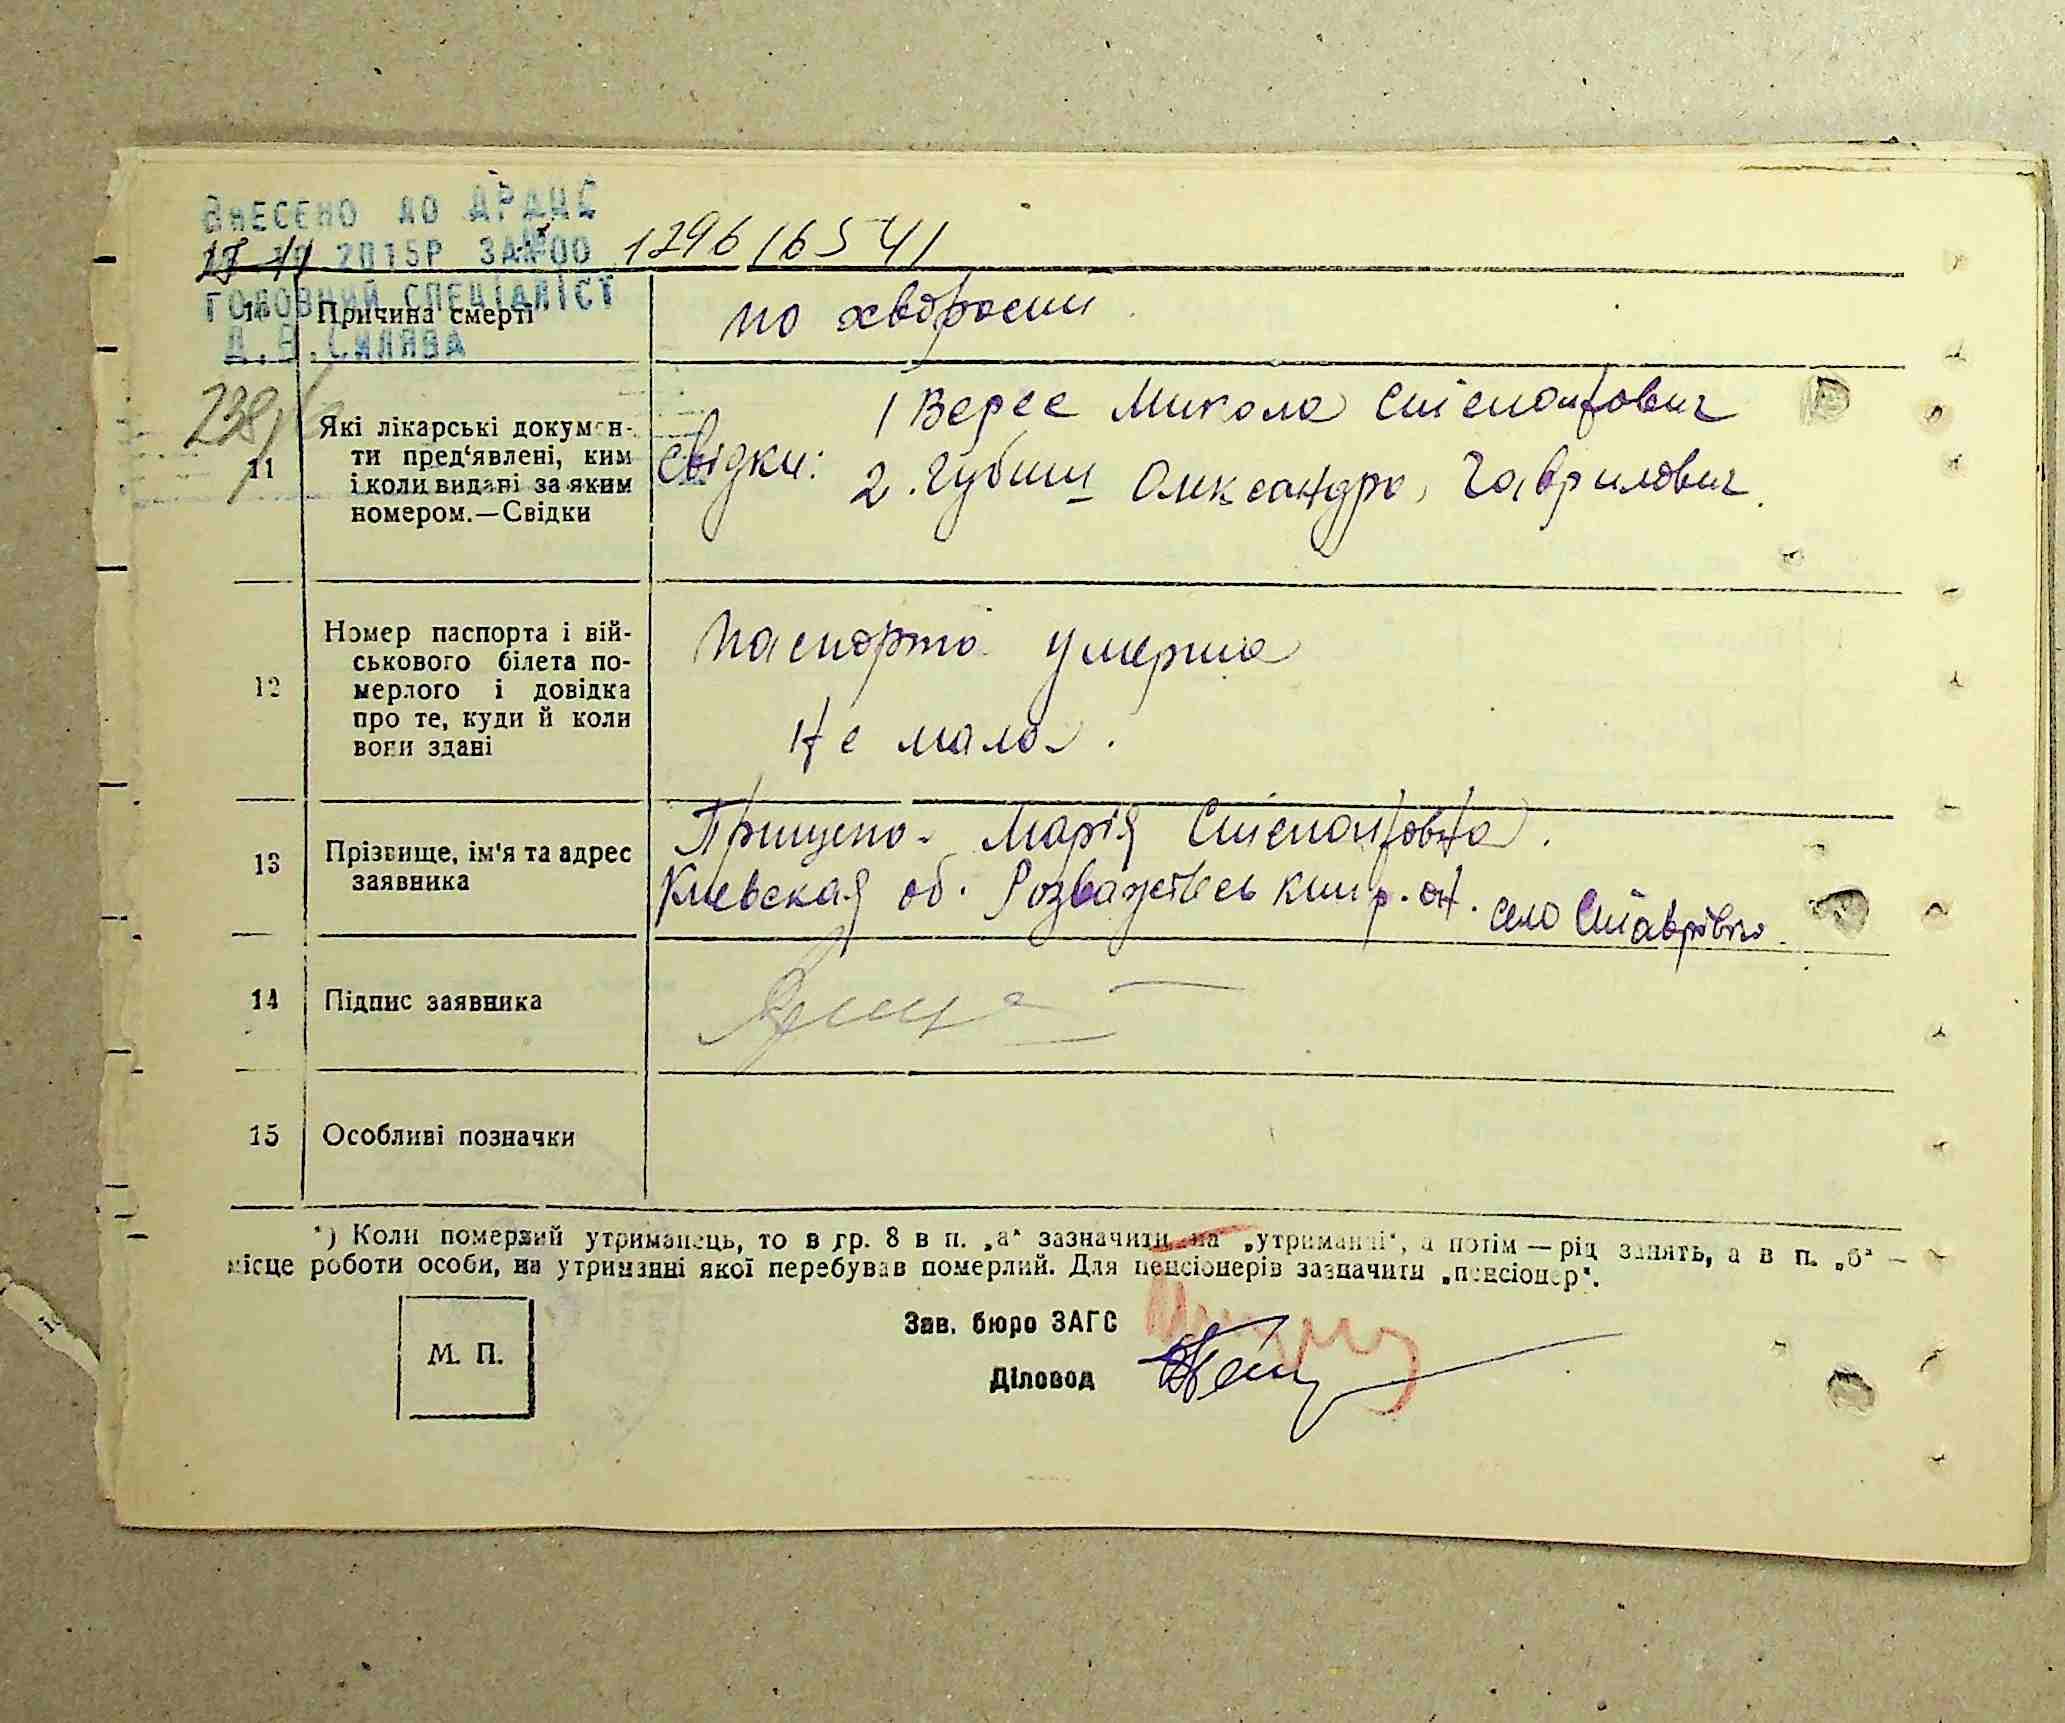 ВНЕСЕНО ДО ДРАЦС
2015Р ЗА №00 129616541
ГОЛОВНИЙ СПЕЦІАЛІСТ
10 Причина смерті по хворости
Д.В.СИЛЯВА
238
11 Які лікарські докумен-
ти пред'явлені, ким
і коли видані за яким
номером.—Свідки
Свідки: 1 Верес Микола Стіепанович
2. Губиш Олександра, Гаврилович.
12 Номер паспорта і вій-
ськового білета по-
мерлого і довідка
про те, куди й коли
вони здані
Паспорта умерша
Не мала.
13 Прізвище, ім'я та адрес
заявника
Прищепа Марія Стіепановна.
Киевская об. Розважівськии р.он. село Ставрівка.
14 Підпис заявника
15 Особливі позначки
*) Коли померлий утриманець, то в гр. 8 в п. „а“ зазначити на „утриманні“, а потім — рід занять, а в п. „б“ —
місце роботи особи, на утриманні якої перебував померлий. Для пенсіонерів зазначити „пенсіонер“.
М. П.
Зав. бюро ЗАГС
Діловод